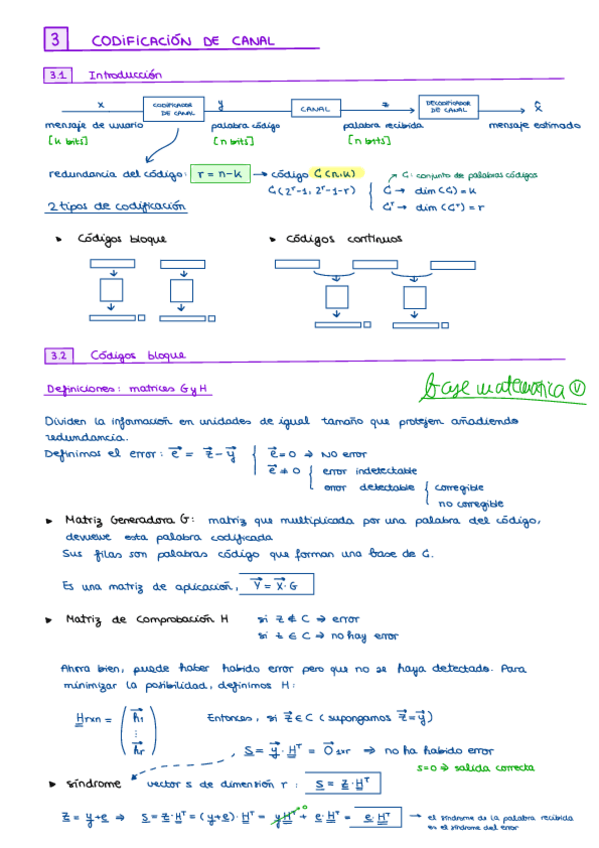 3 CODIFICACIÓN DE CANAL
3.1 Introducción
x CODIFICADOR DE CANAL y CANAL z DECODIFICADOR DE CANAL x̂
mensaje de usuario palabra código palabra recibida mensaje estimado
[k bits] [n bits] [n bits]
redundancia del código: r = n-k → código C(n,k) C: conjunto de palabras códigos
C(2^r-1, 2^r-1-r) { C → dim (C) = k
C^r → dim (C^r) = r
2 tipos de codificación
▸ Códigos bloque ▸ Códigos continuos
3.2 Códigos bloque
Definiciones: matrices G y H
base matemática V
Dividen la información en unidades de igual tamaño que protejen añadiendo
redundancia.
Definimos el error: e = z - y { e = 0 → NO error
e ≠ 0 { error indetectable
error detectable { corregible
no corregible
▸ Matriz Generadora G: matriz que multiplicada por una palabra del código,
devuelve esta palabra codificada
Sus filas son palabras código que forman una base de C.
Es una matriz de aplicación, Y = X · G
▸ Matriz de Comprobación H si z ∉ C → error
si z ∈ C → no hay error
Ahora bien, puede haber habido error pero que no se haya detectado. Para
minimizar la posibilidad, definimos H:
H rxn = ( h1 ⋮ hr ) Entonces, si z ∈ C (supongamos z = y)
s = y · H^T = 0 1xr → no ha habido error
s=0 → salida correcta
▸ síndrome vector s de dimensión r : s = z · H^T
z = y+e → s = z · H^T = (y+e) · H^T = yH^T 0 + e · H^T = e · H^T → el síndrome de la palabra recibida
es el síndrome del error